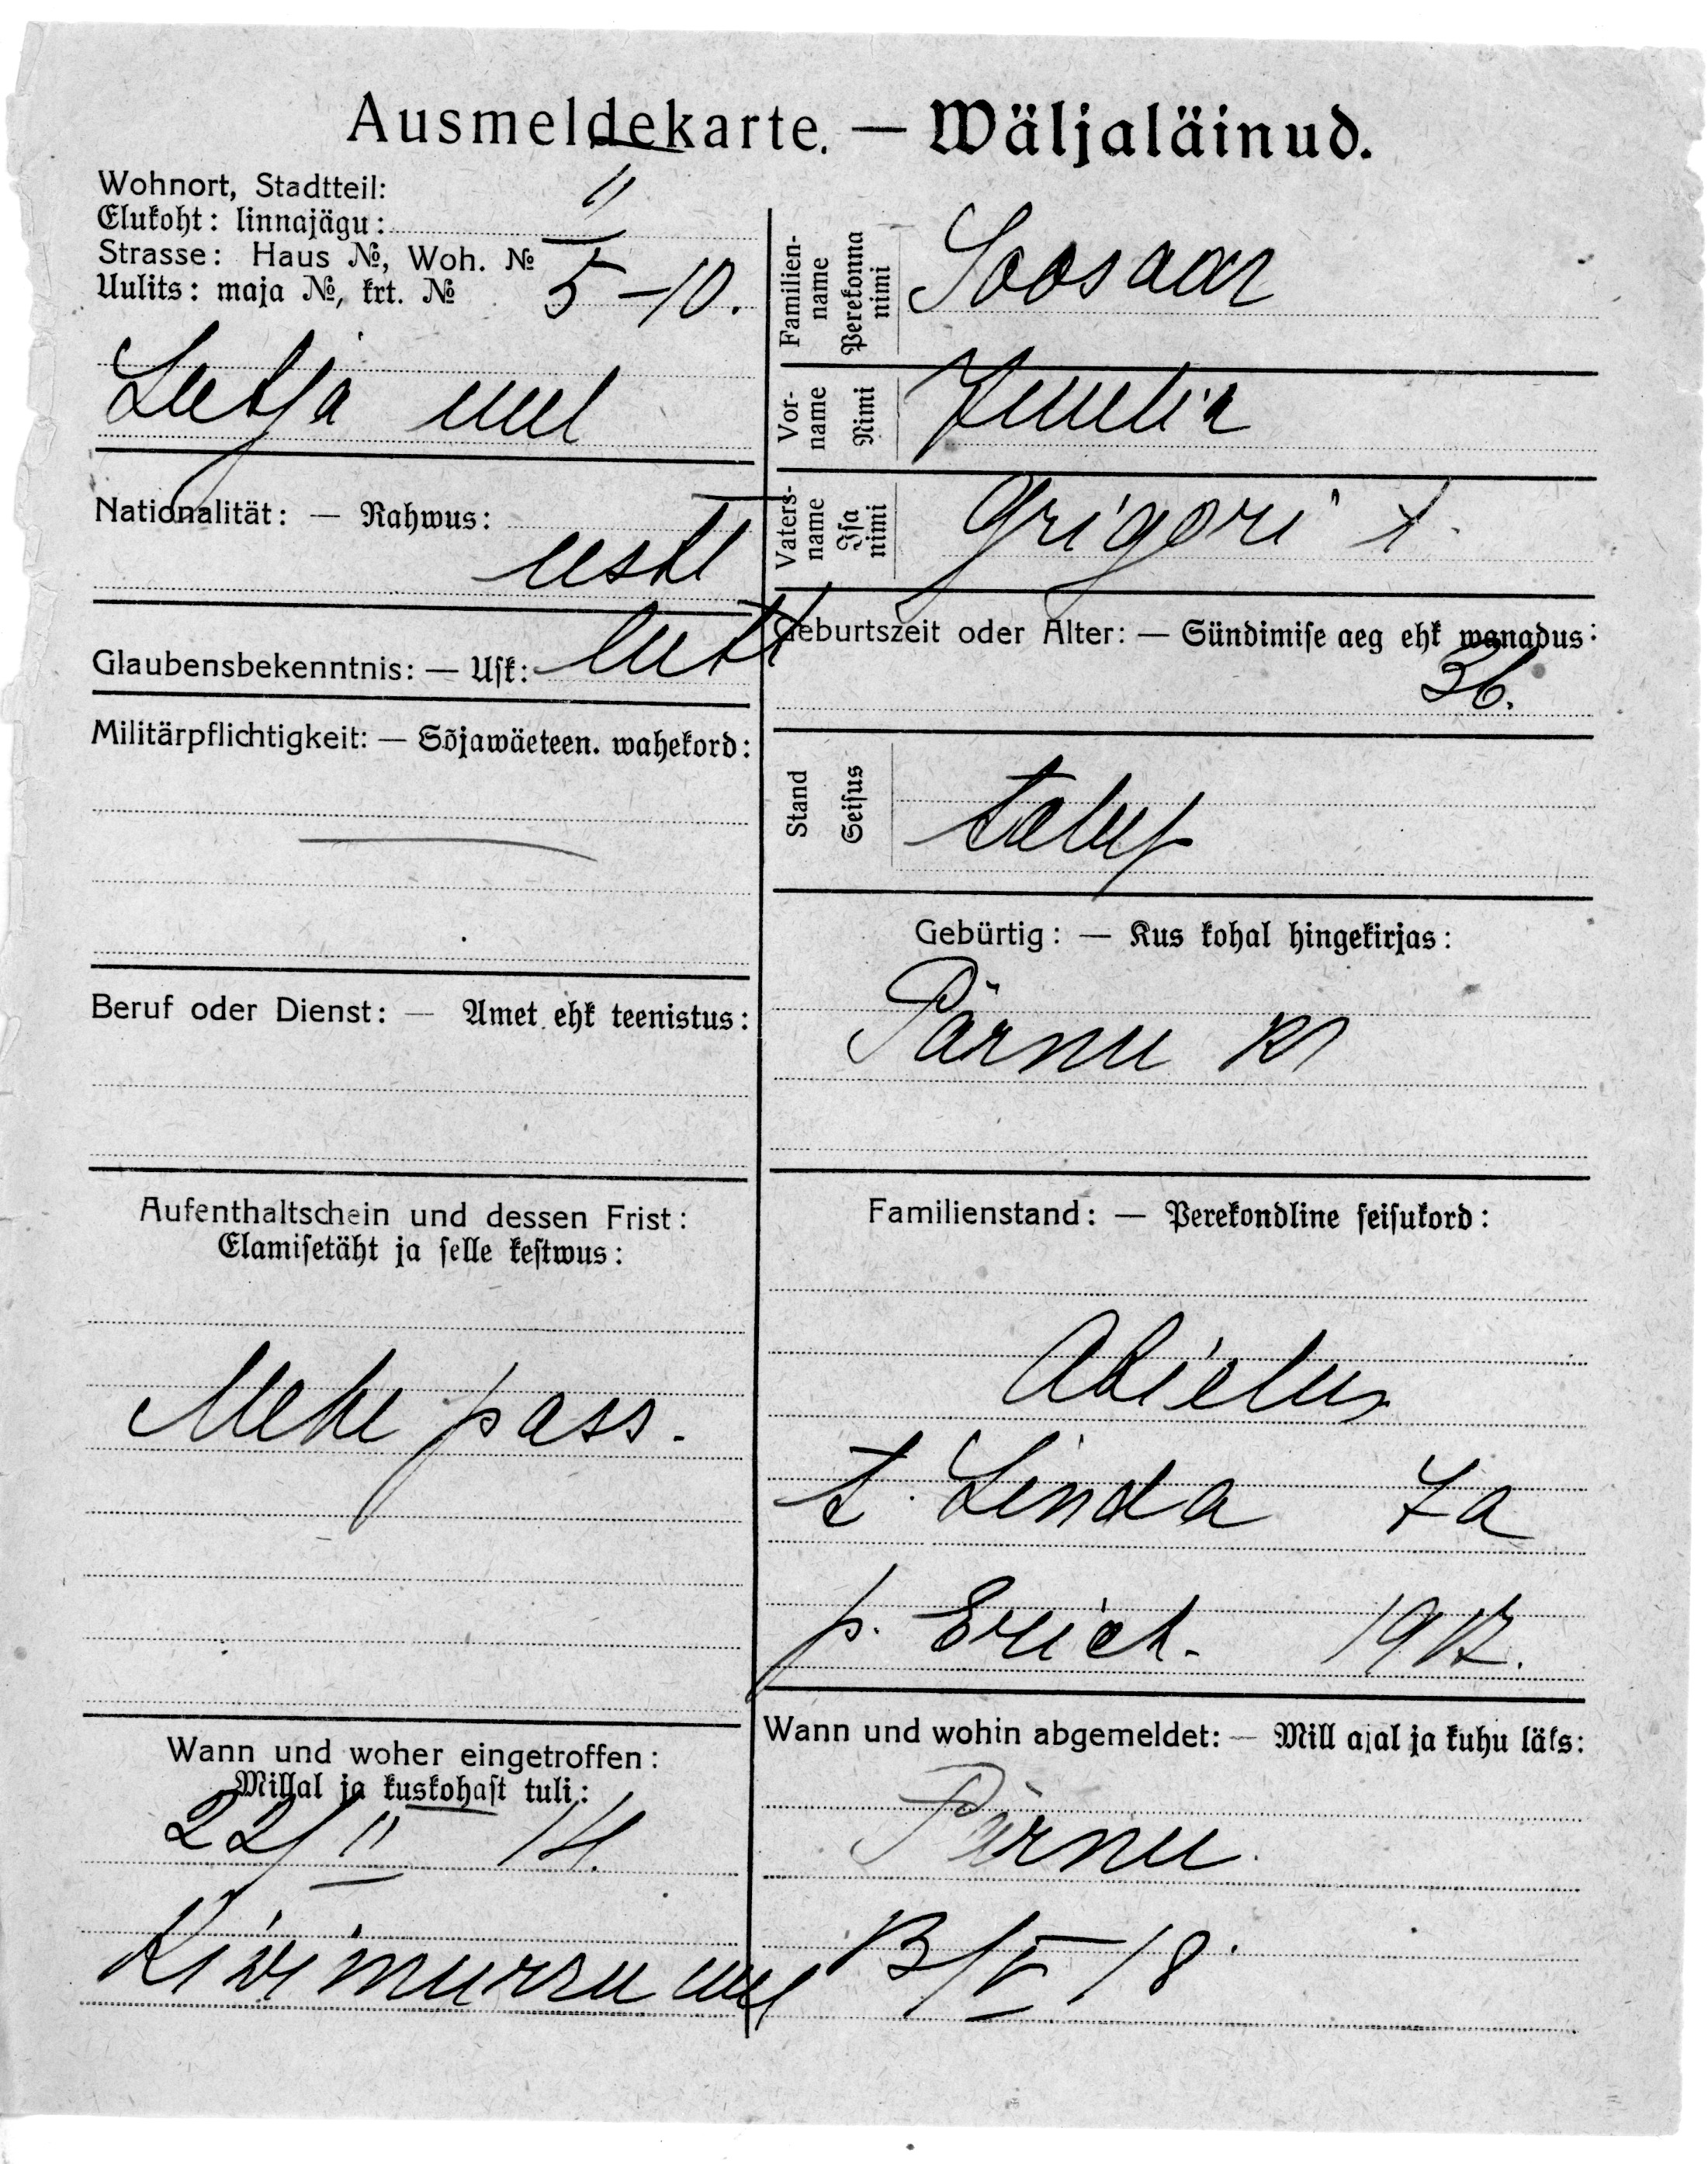 Ausmeldekarte. — Wäljaläinud.
Wohnort, Stadtteil:
Elukoht: linnajägu: II
Strasse: Haus №, Woh. №
Uulits: maja №, krt. № 5-10.
Lutsja uul
Nationalität: — Rahwus:
eestl
Glaubensbekenntnis: — Usk: lutt
Militärpflichtigkeit: — Sõjawäeteen. wahekord:
Beruf oder Dienst: — Amet ehk teenistus:
Aufenthaltschein und dessen Frist:
Elamisetäht ja selle kestwus:
Mehe pass.
Wann und woher eingetroffen:
Millal ja kuskohast tuli:
22/II 14.
Kiwimurru uul
Familien-
name
Perekonna
nimi
Soosaar
Vor-
name
Nimi
Vaters-
name
Isa
nimi
Grigori t.
Geburtszeit oder Alter: — Sündimise aeg ehk wanadus:
36.
Stand
Seisus
talup
Gebürtig: — Kus kohal hingekirjas:
Pärnu kr
Familienstand: — Perekondline seisukord:
Abielus
t. Linda 7a
p. Erich. 1917.
Wann und wohin abgemeldet: — Mill ajal ja kuhu läks:
Pärnu.
13/V 18.